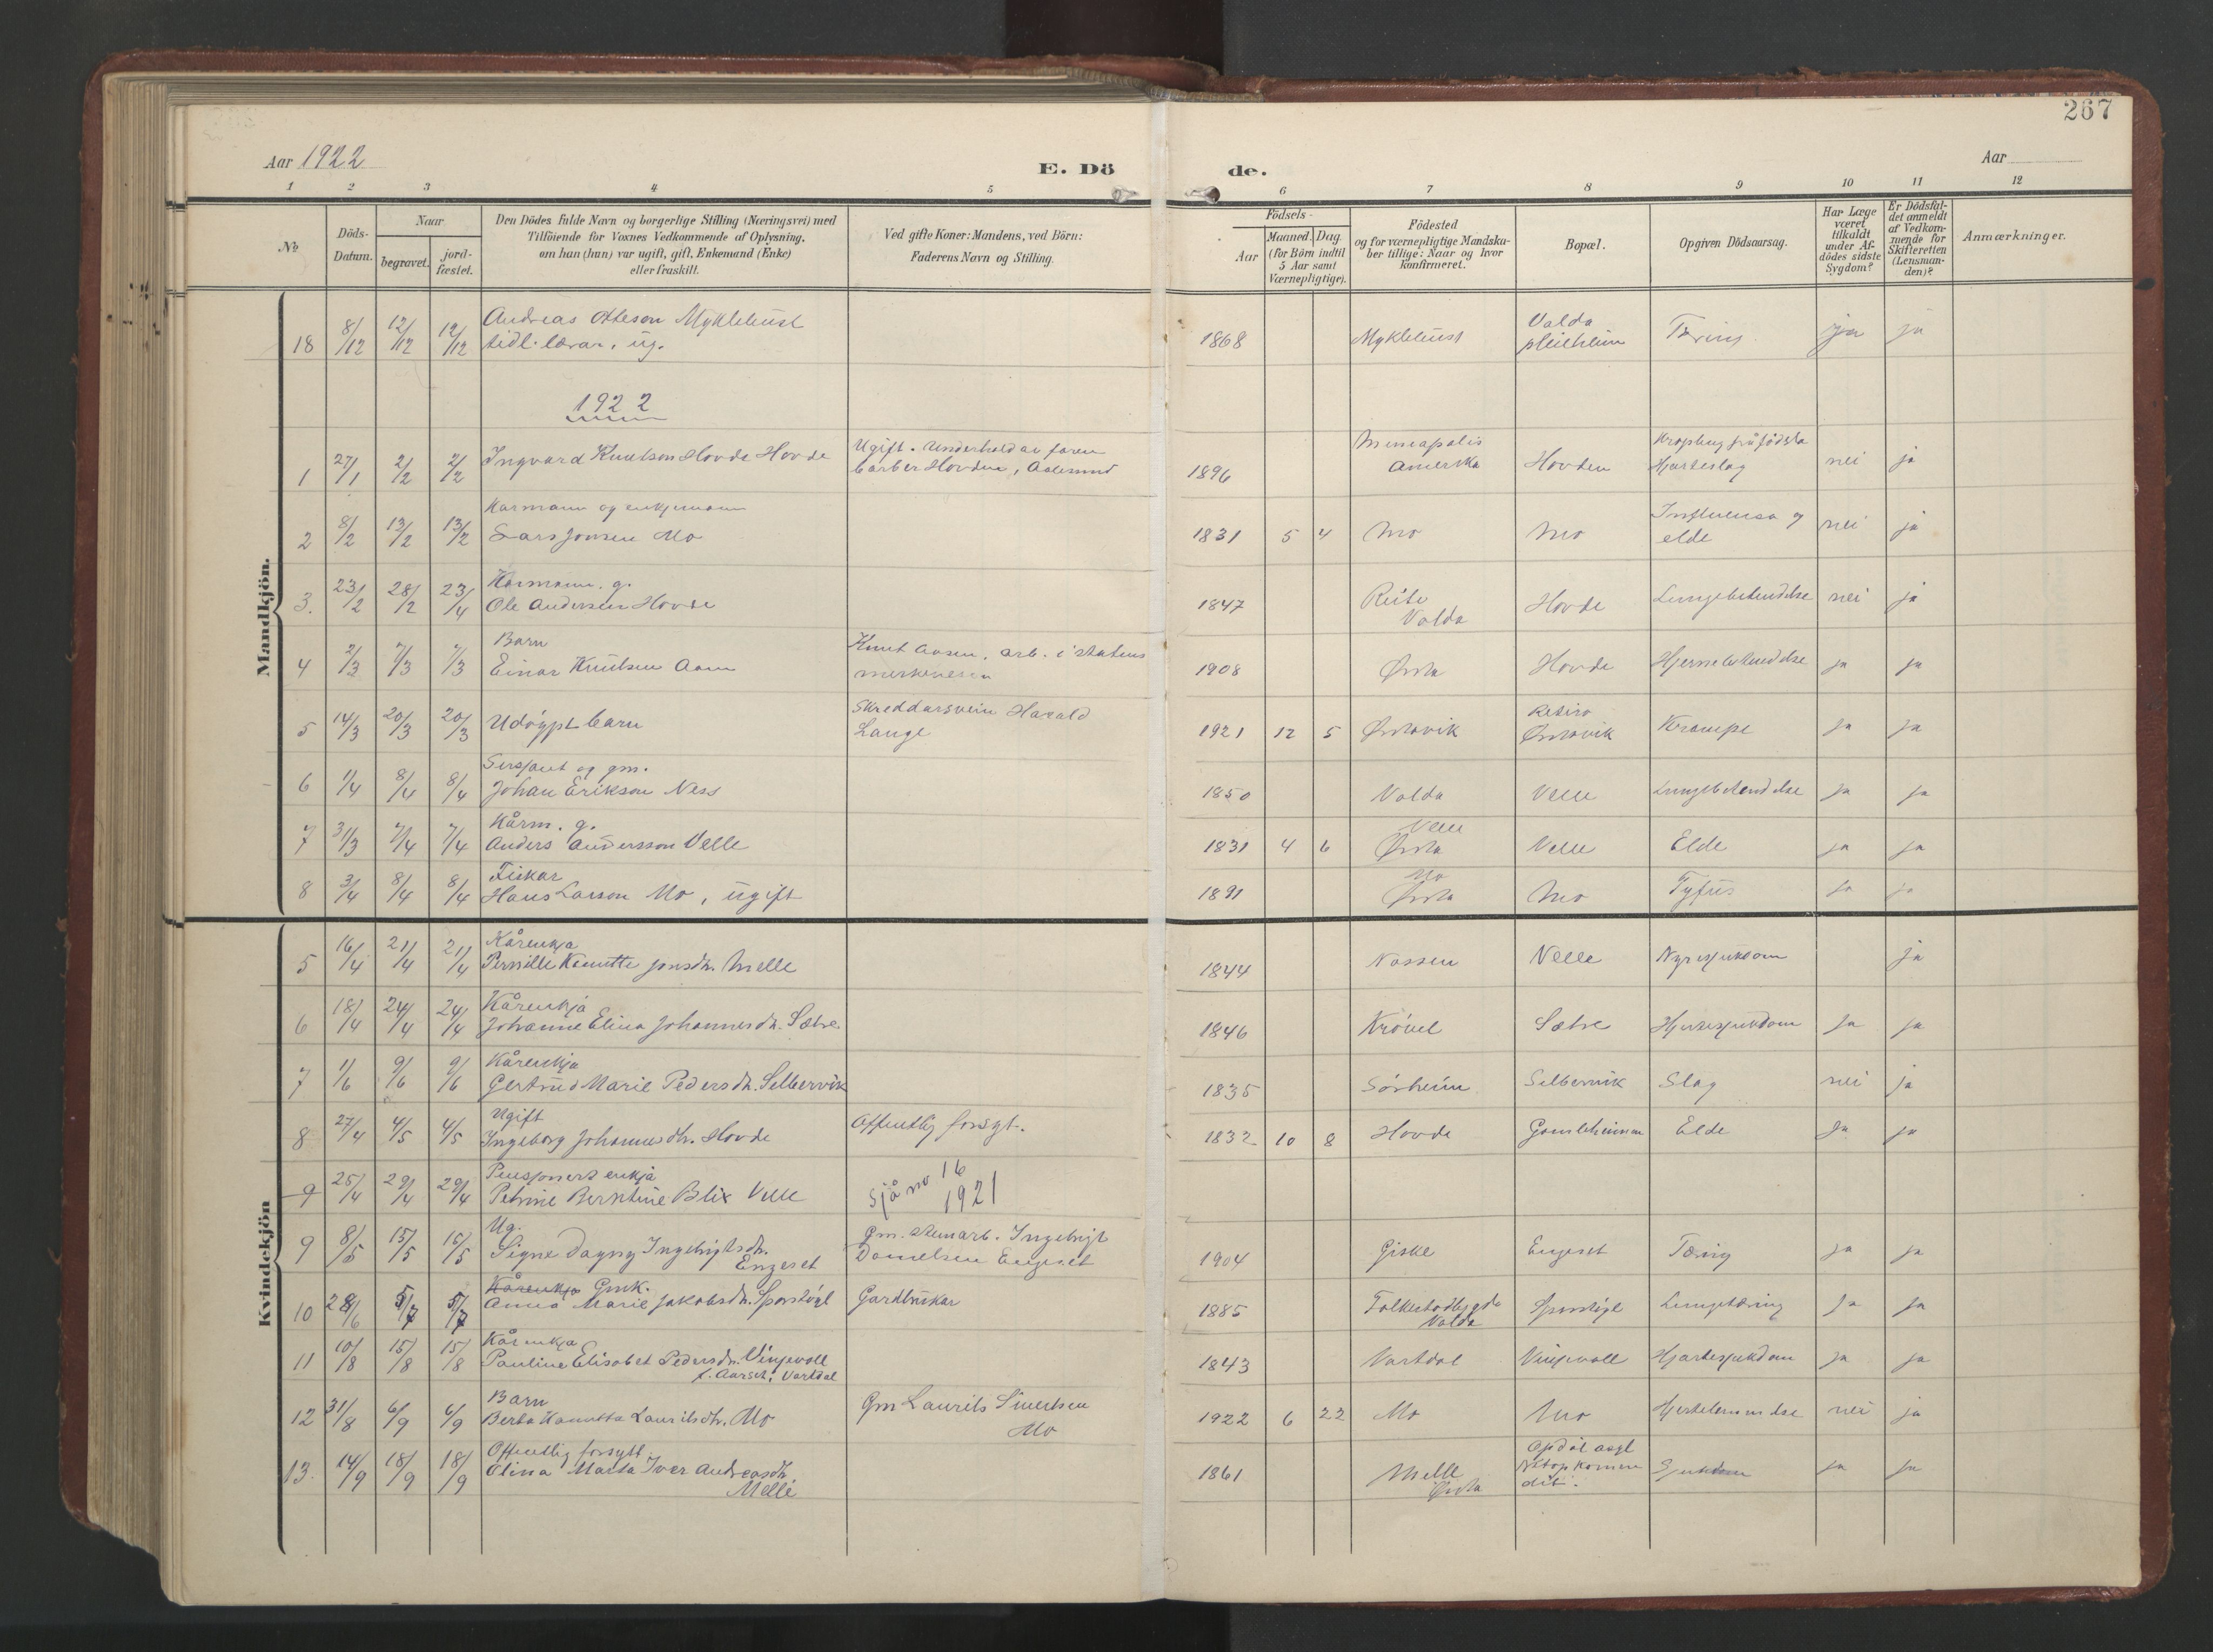 267
Aar 1922
E. Dö
de.
Aar
1 2 3 4 5 6 7 8 9 10 11 12
№
Döds-Datum.
Naar
begravet.
jord-fæstet.
Den Dödes fulde Navn og borgerlige Stilling (Næringsvei) med
Tilföiende for Voxnes Vedkommende af Oplysning,
om han (hun) var ugift, gift, Enkemand (Enke)
eller fraskilt.
Ved gifte Koner: Mandens, ved Börn:
Faderens Navn og Stilling.
Födsels-
Aar
Maaned. Dag.
(for Börn indtil
5 Aar samt
Værnepligtige).
Födested
og for værnepligtige Mandska-
ber tillige: Naar og hvor
konfirmeret.
Bopæl.
Opgiven Dödsaarsag.
Har Læge
været
tilkaldt
under Af-
dödes sidste
Sygdom?
Er Dödsfal-
det anmeldt
af Vedkom-
mende for
Skifteretten
(Lensman-
den)?
Anmærkninger.
Mandkjön.
18 8/12 12/12 12/12 Andreas Otteson Myklebust
tidl. lærar, ug. 1868 Myklebust Volda Tæring ja ja
1922
1 27/1 2/2 2/2 Ingvard Knutson Hovde Hovde Ugift. Underhald av faren
barber Hovden, Aalesund 1896 Mineapolis
Amerika Hovden Hjarteslag nei ja
2 8/2 13/2 13/2 Kårmann og enkjemann
Lars Jonsen Mo 1831 5 4 Mo Mo Influensa og
elde nei ja
3. 23/2 28/2 23/4 Kårmann. g.
Ole Andersen Hovde 1847 Reite
Volda Hovde Lungebetendelse nei ja
4 2/3 7/3 7/3 Barn
Einar Knutsen Aam Knut Aasen, arb. i statens
merkevesen 1908 Ørsta Hovde Hjernebetendelse ja ja
5 14/3 20/3 20/3 Udöypt barn Skreddarsvein Harald
Lange 1921 12 5 Ørstavik Ørstavik Krampe ja ja
6 1/4 8/4 8/4 Sersjant og gm.
Johan Erikson Ness 1850 Volda Velle Lungebetendelse ja ja
7 31/3 7/4 7/4 Kårm. g.
Anders Andersson Velle 1831 4 6 Velle
Ørsta Velle Elde ja ja
8 3/4 8/4 8/4 Fiskar
Hans Larson Mo, ugift 1891 Mo
Ørsta Mo Tyfus ja ja
Kvindekjön
5 16/4 21/4 21/4 Kårenkja
Pernille Knutte Jonsdtr. Melle 1844 Nossen Velle Nyresjukdom ja
6 18/4 24/4 24/4 Kårenkja
Johanne Elina Johannesdtr. Sætre. 1846 Krövel Sætre Hjartesjukdom ja ja
7 1/6 9/6 9/6 Kårenkja
Gertrud Marie Pedersdtr. Selbervik 1835 Sörheim Selbervik Slag nei ja
8 27/4 4/5 4/5 Ugift
Ingeborg Johannesdtr. Hovde Offentlig forsyt. 1832 10 8 Hovde Gamleheimen Elde ja ja
9 25/4 29/4 29/4 Pensjonert enkja
Petrine Berntine Blix Velle Sjå no 16
1921
9 8/5 15/5 15/5 Ug.
Signe Dagny Ingebrigtsdtr.
Engeset Gm. steinarb. Ingebrigt
Danielsen Engeset 1904 Giske Engeset Tæring ja ja
10 28/6 5/7 5/7 Kårenkja Gmk.
Anna Marie Jakobsdtr. Sporstöyl Gardbrukar 1885 Folkestadbygda
Volda Sporstöyl Lungetæring ja ja
11 10/8 15/8 15/8 Kårenkja
Pauline Elisabet Pedersdtr. Vinjevoll
f. Aarset, Vartdal 1843 Vartdal Vinjevoll Hjartesjukdom ja ja
12 31/8 6/9 6/9 Barn
Berta Knutta Lauritsdtr. Mo Gm Laurits Sivertsen
Mo 1922 6 22 Mo Mo nei ja
13. 14/9 18/9 18/9 Offentlig forsytt.
Olina Marta Iver Andreasdtr.
Melle 1861 Melle
Ørsta Opdöl asyl ja ja